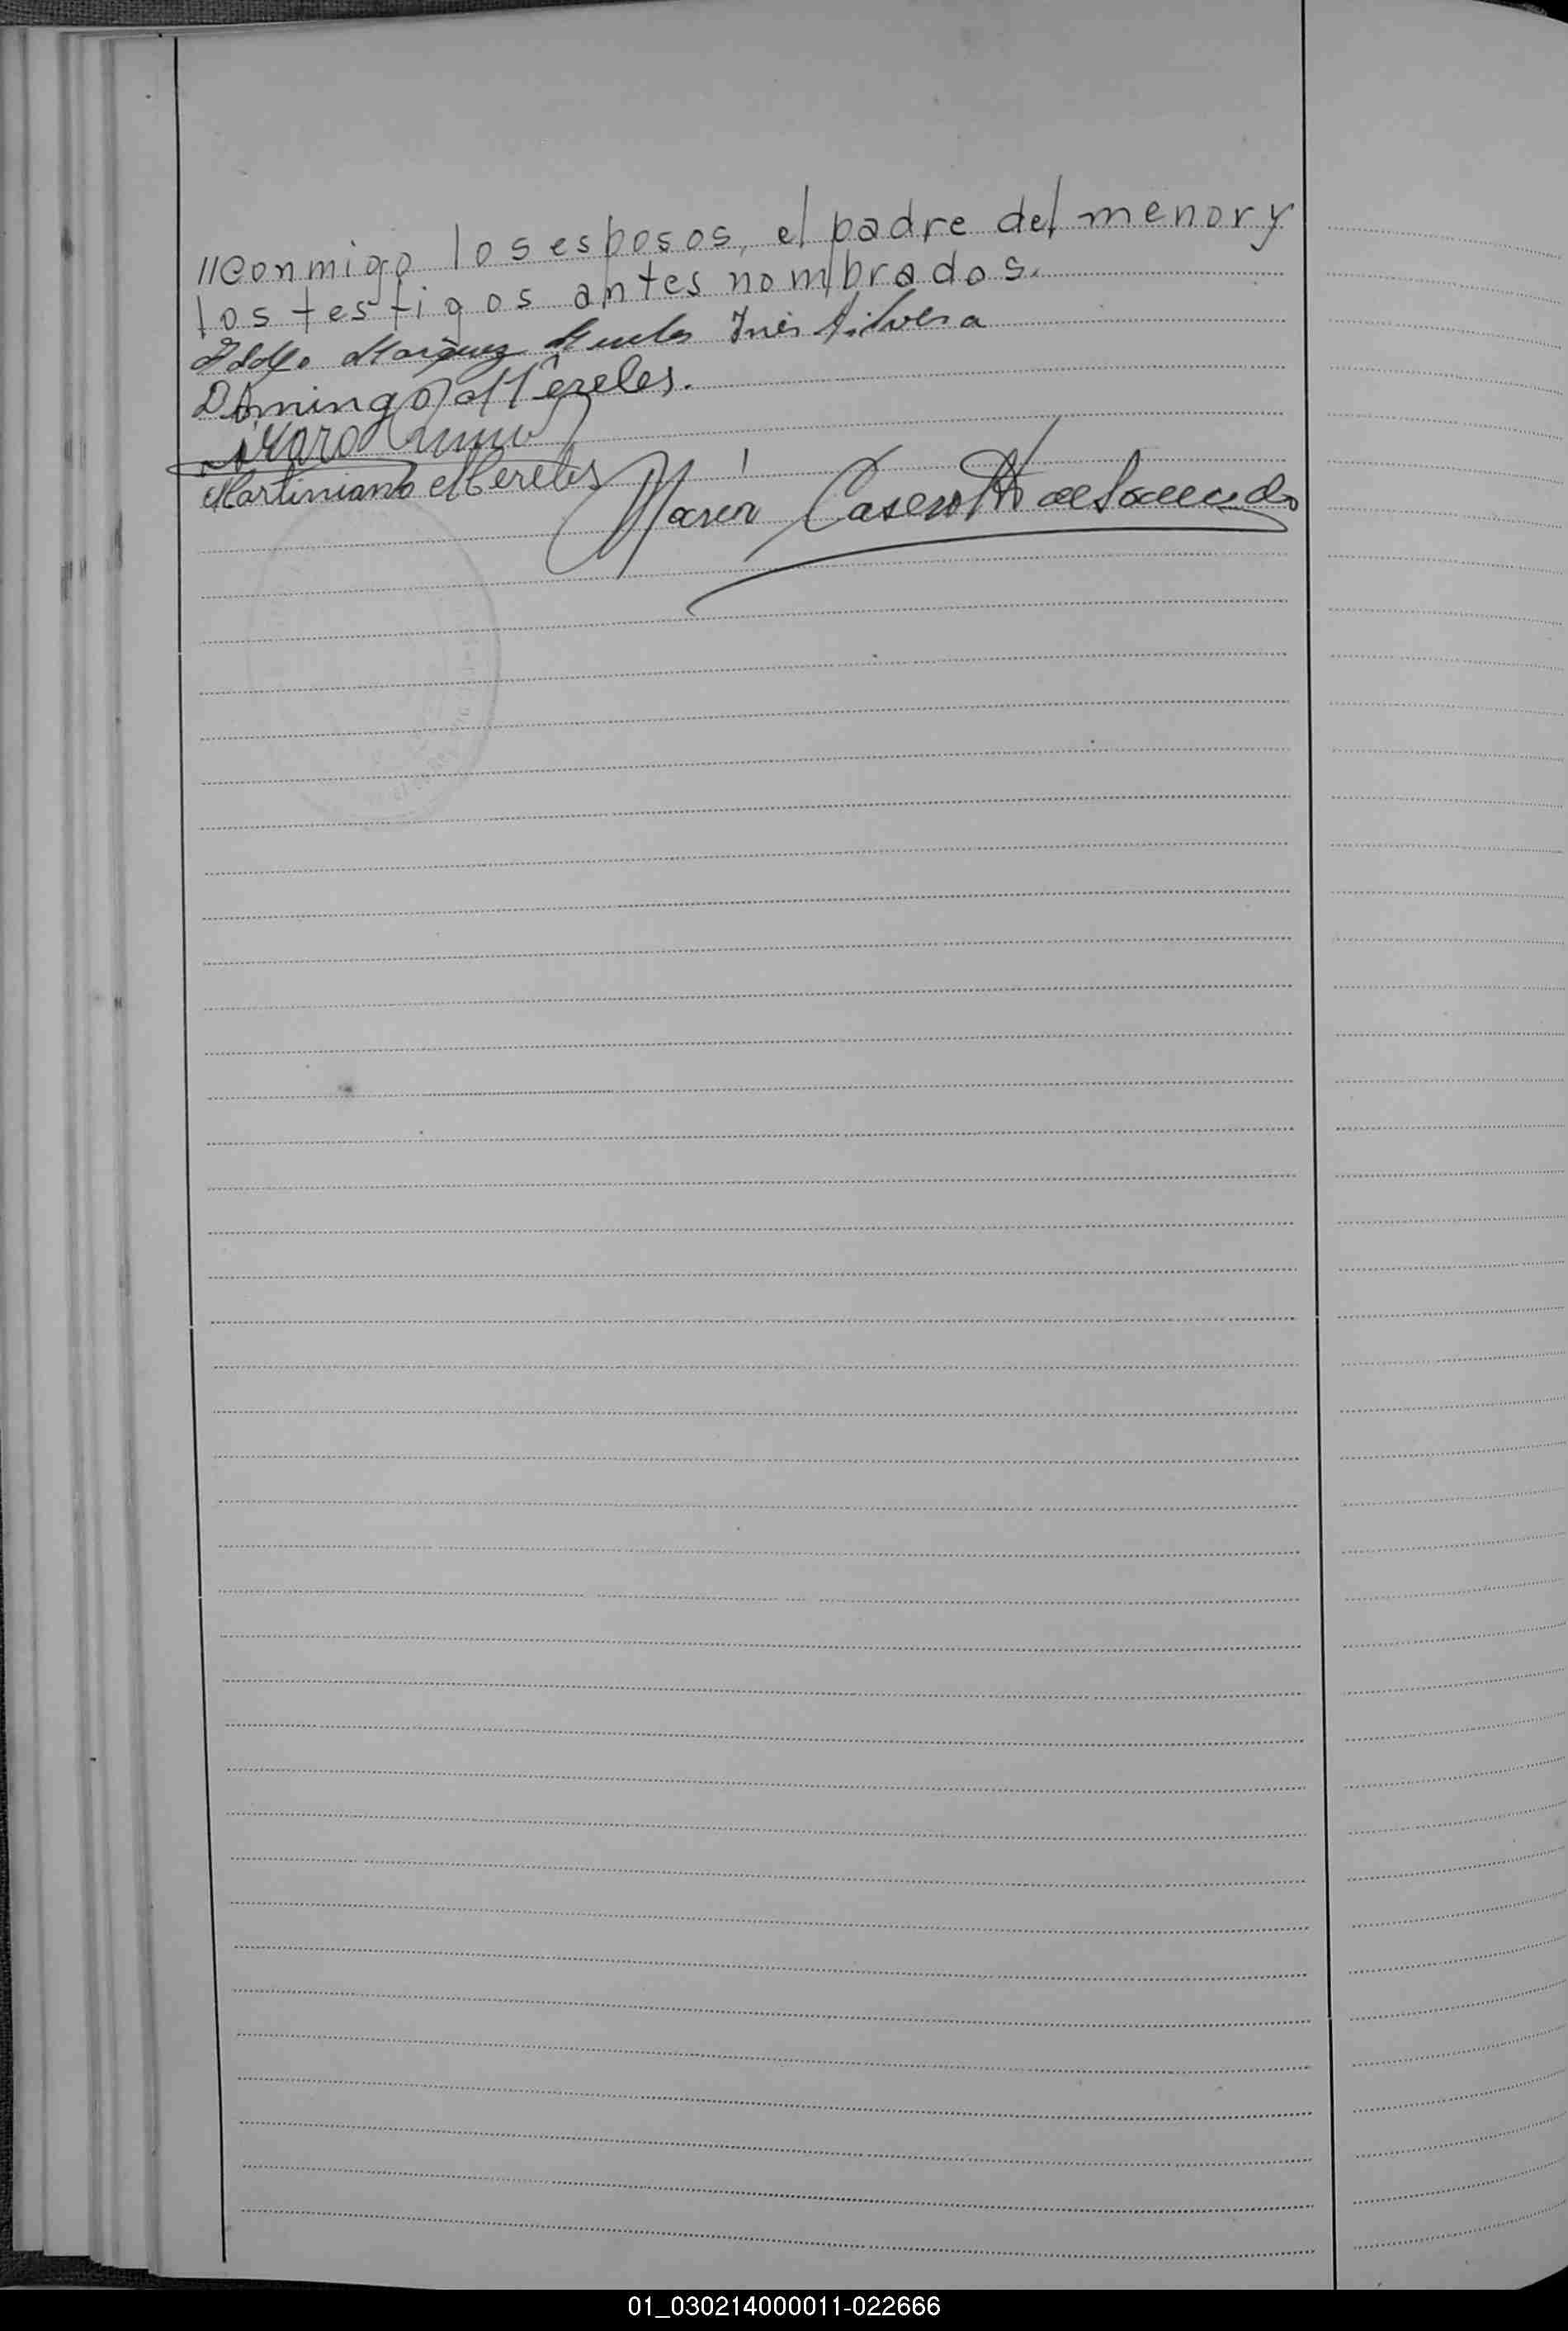 //Conmigo los esposos, el padre del menor y
los testigos antes nombrados.
Marquez Inés Silvera
Domingo Mereles.
Martiniano Mereles
María Caserotto de
01_030214000011-022666